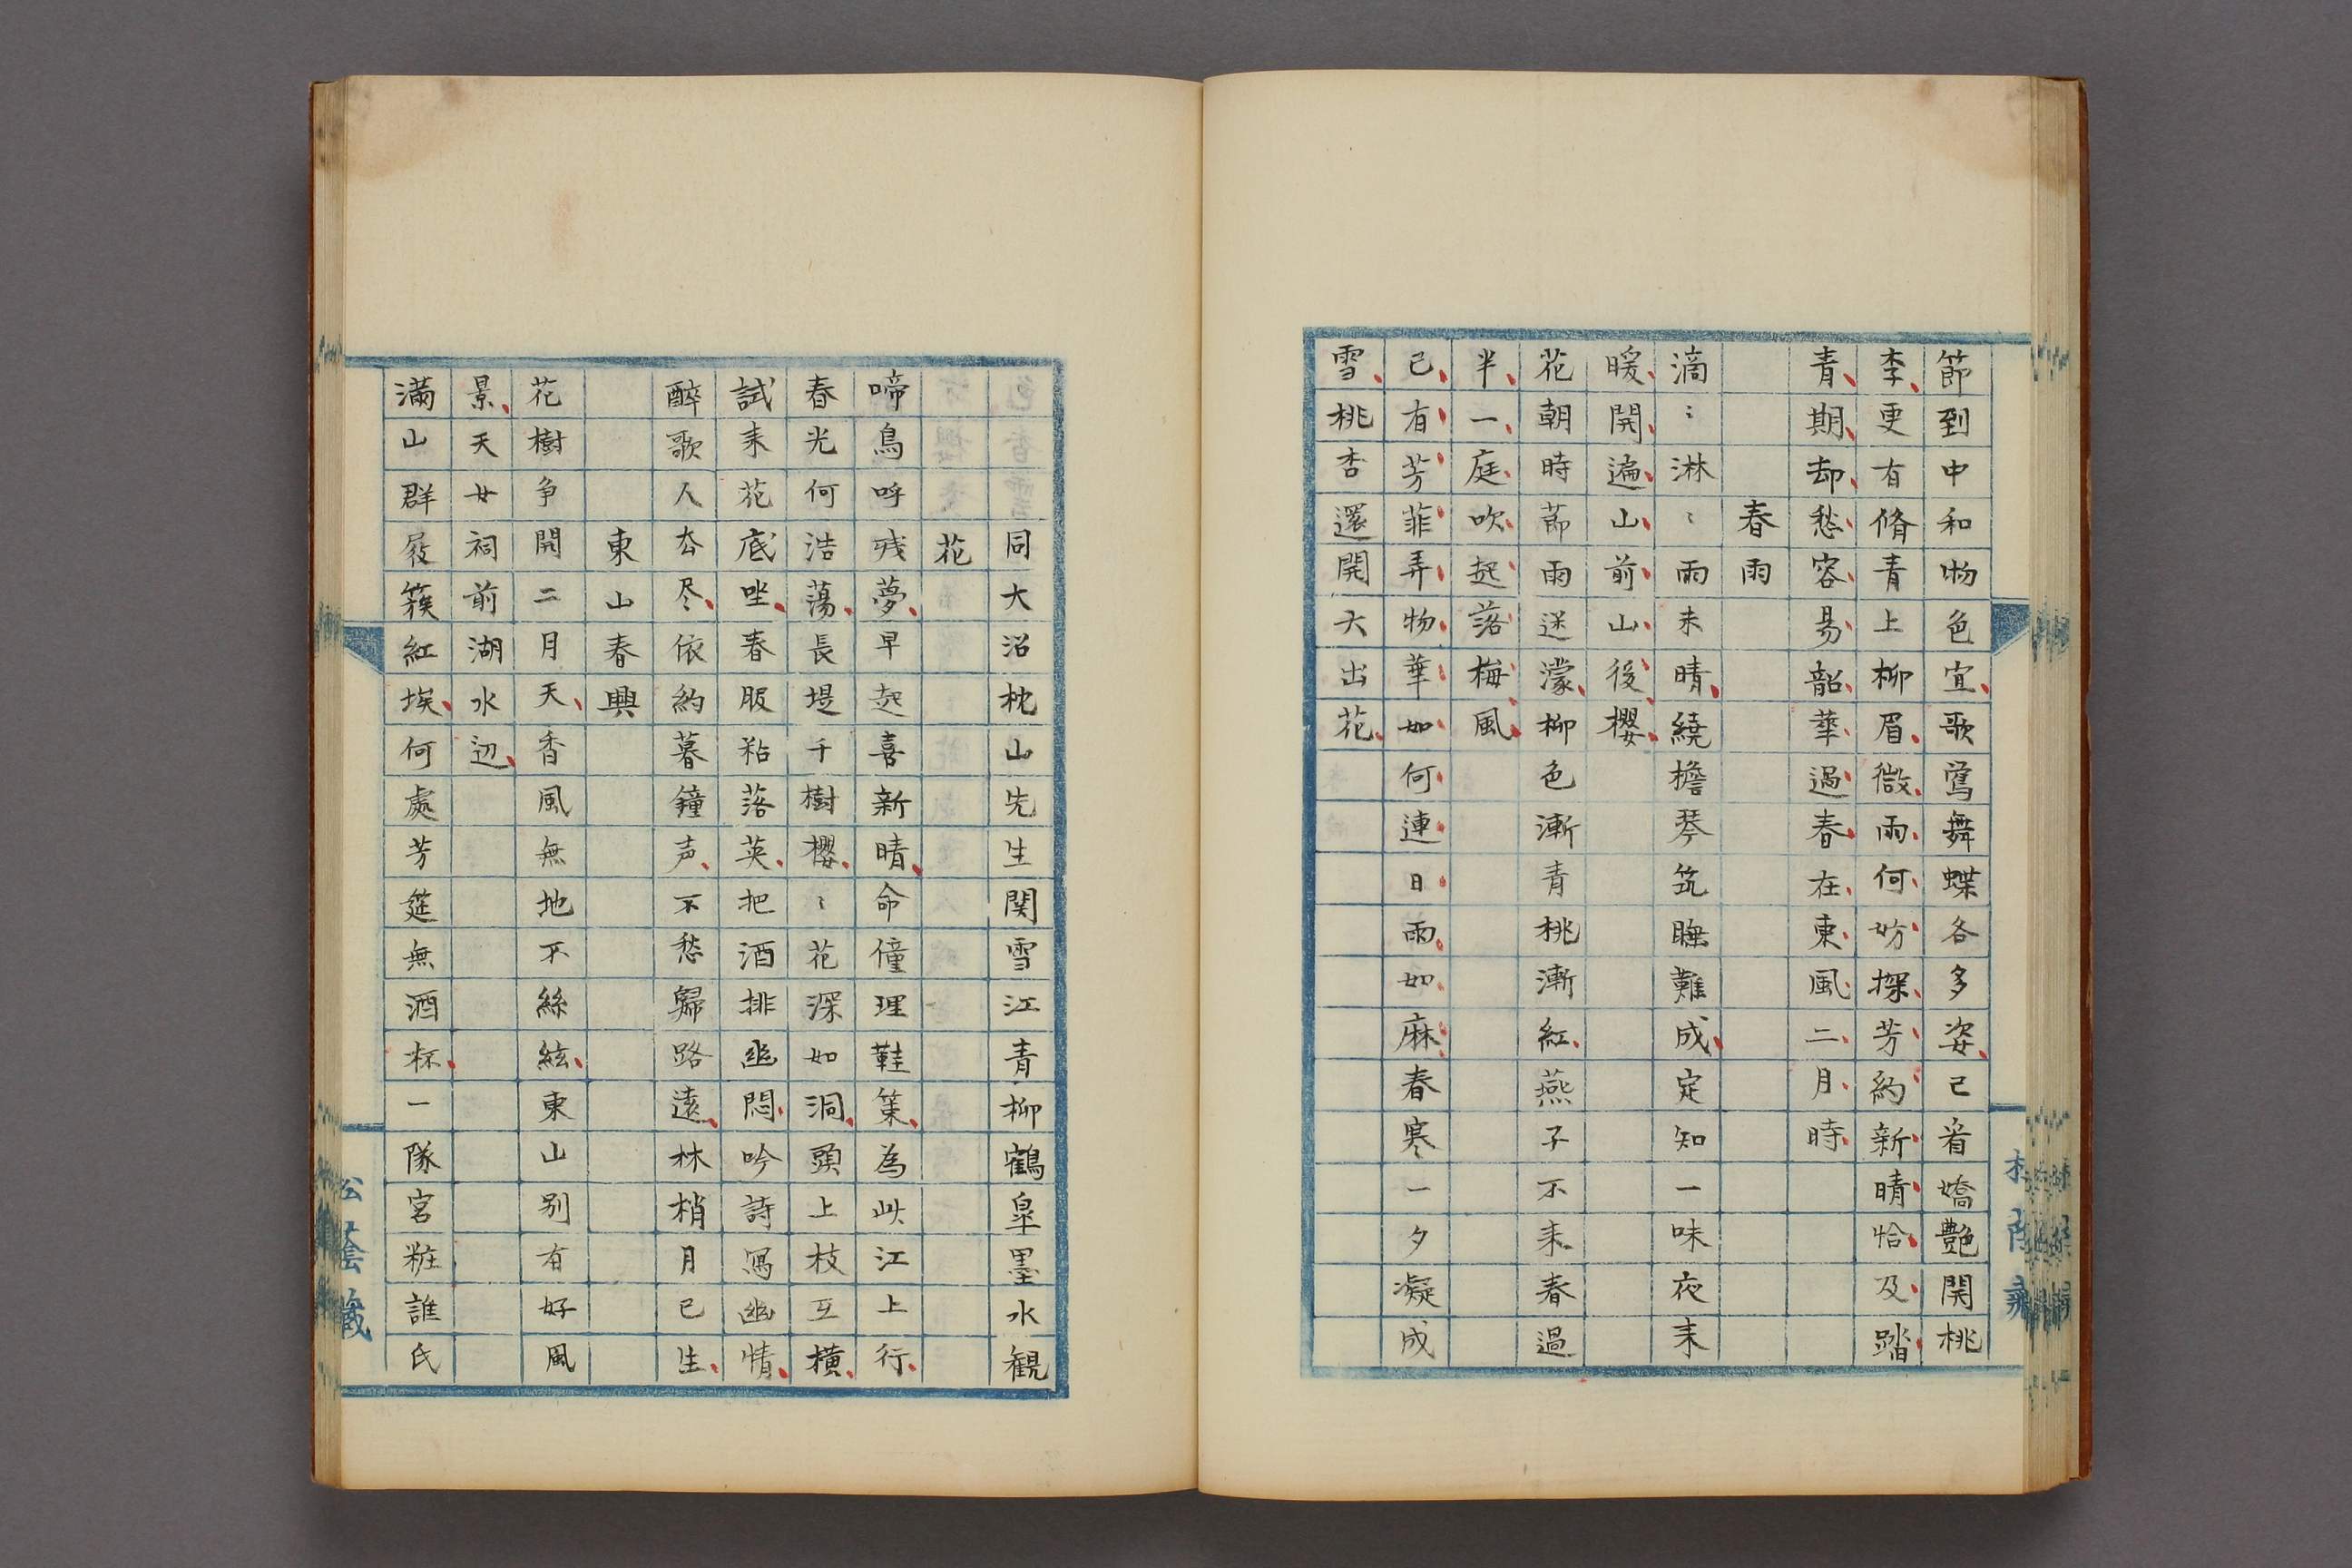 節到中和物色宜歌鶯舞蝶各多姿已看嬌艷開桃
李更有脩青上柳眉微雨何妨探芳約新晴恰及踏
青期却愁容易韶華過春在東風二月時
春雨
滴〻淋〻雨未晴繞檐琴筑睡難成定知一味夜来
暖開遍山前山後櫻
花朝時節雨迷濛柳色漸青桃漸紅燕子不来春過
半一庭吹起落梅風
已有芳菲弄物華如何連日雨如麻春寒一夕凝成
雪桃杏還開六出花
同大沼枕山先生関雪江青柳鶴皐墨水観
花
啼鳥呼残夢早起喜新晴命僮理鞋策為此江上行
春光何浩蕩長堤千樹櫻〻花深如洞頭上枝互横
試来花底坐春服粘落英把酒排幽悶吟詩寫幽情
醉歌人厺尽依約暮鐘声不愁歸路遠林梢月已生
東山春興
花樹争開二月天香風無地不絲絃東山別有好風
景天女祠前湖水辺
満山群屐簇紅埃何處芳筵無酒杯一隊宮粧誰氏
松蔭蔵